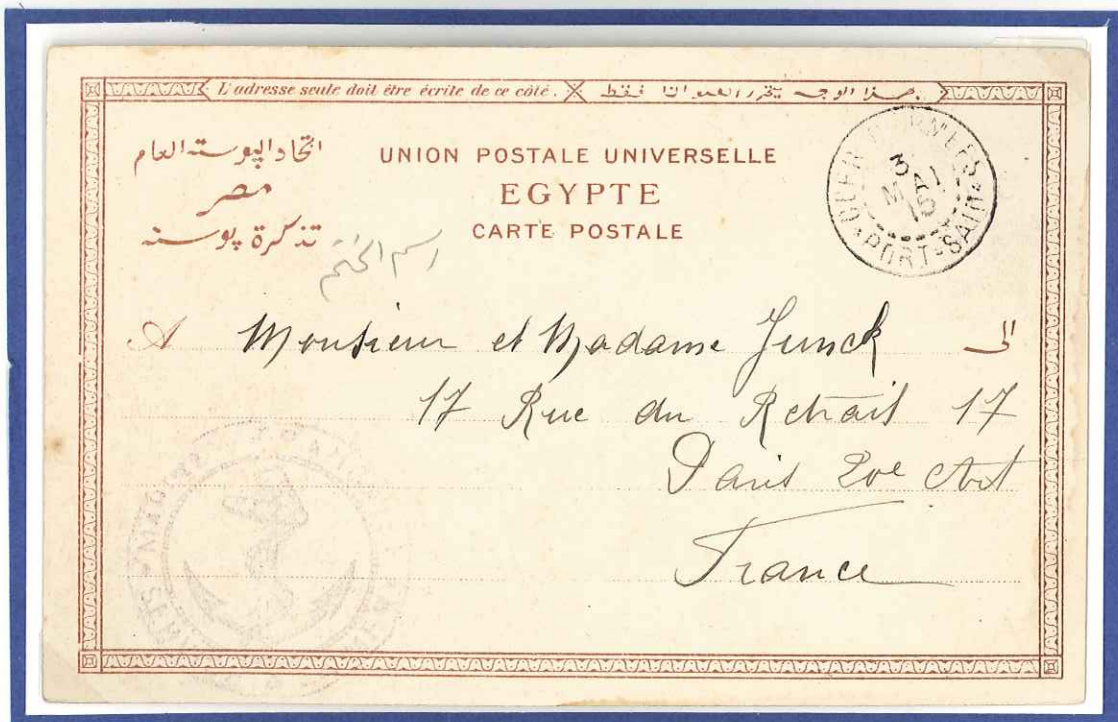 L'adresse seule doit être écrite de ce côté. هذا الوجه يحرر العنوان فقط
اتحاد البوسته العام
مصر
تذكرة بوسته
UNION POSTALE UNIVERSELLE
EGYPTE
CARTE POSTALE
3
MAI
15
PORT-SAID
اسم الختم
A Monsieur et Madame Junck الى
17 Rue du Retrait 17
Paris 20e Art
France